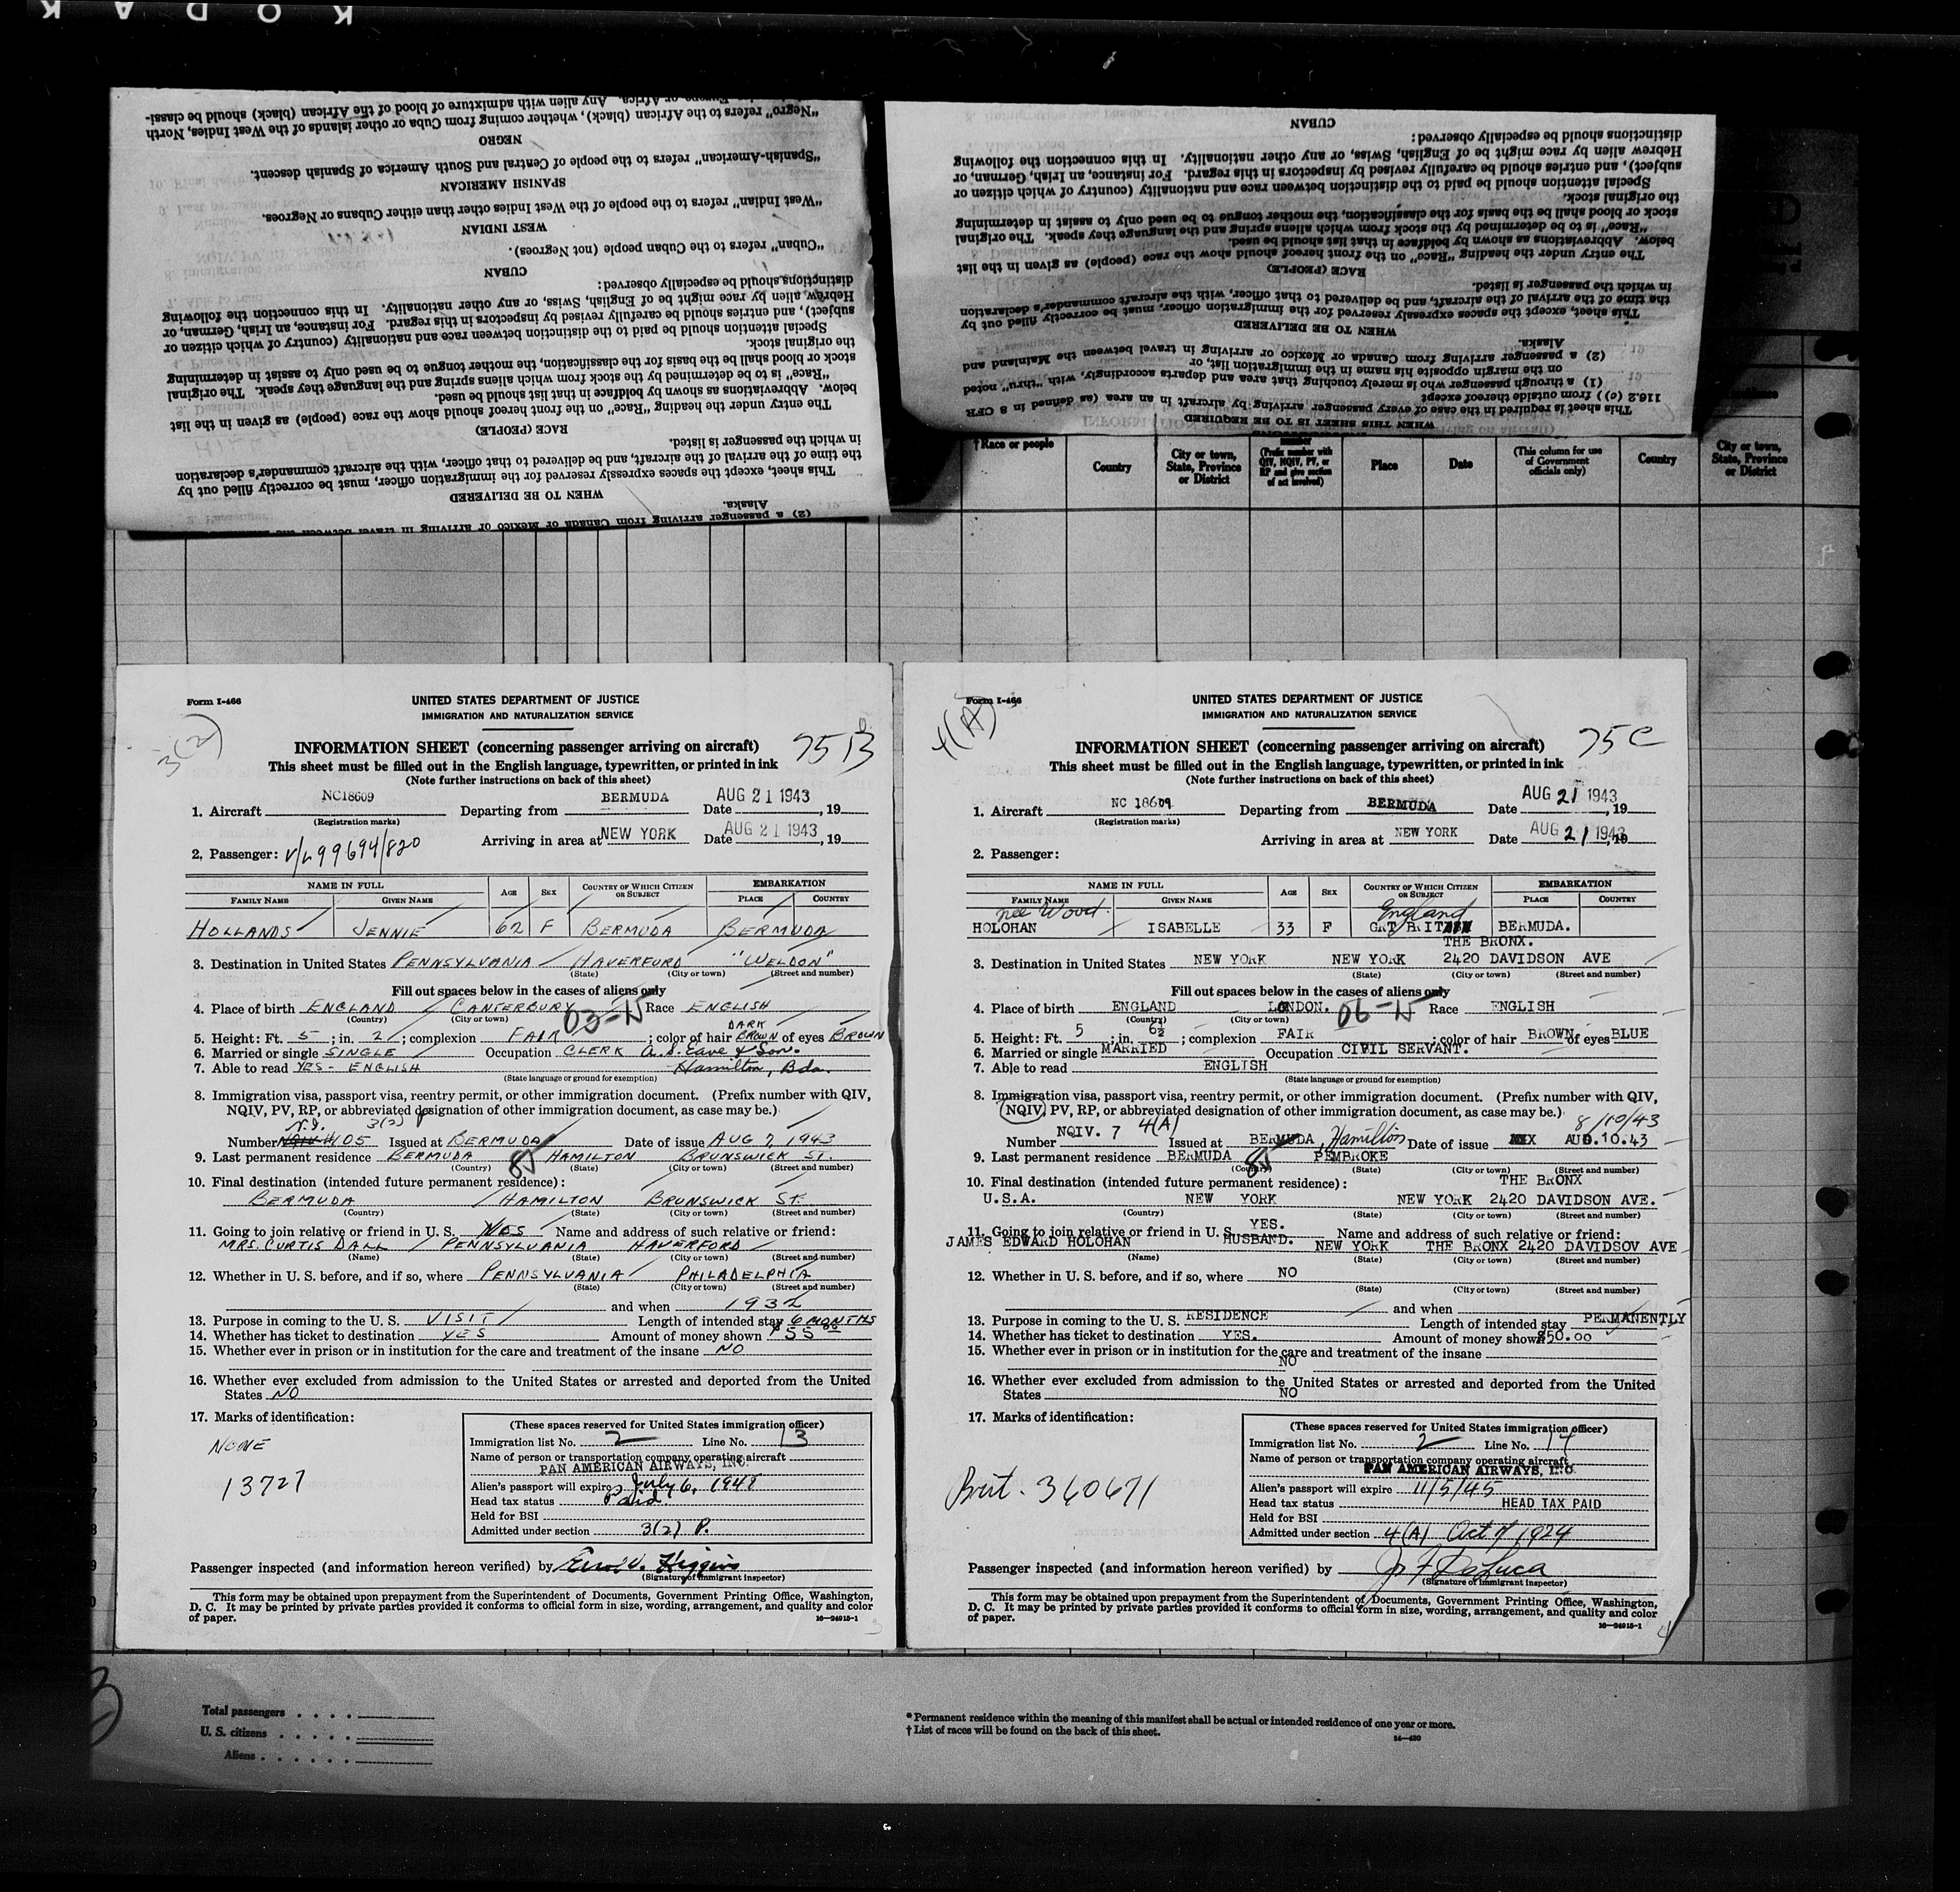 KODAK
"Negro" refers to the African (black), whether coming from Cuba or other islands of the West Indies, North
Europe or Africa. Any alien with admixture of blood of the African (black) should be classi-
(2) a passenger arriving from Canada or Mexico or arriving in travel between the
Alaska.
WHEN TO BE DELIVERED
This sheet, except the spaces expressly reserved for the immigration officer, must be correctly filled out by
the time of the arrival of the aircraft, and be delivered to that officer, with the aircraft commander's declaration
in which the passenger is listed.
RACE (PEOPLE)
The entry under the heading "Race" on the front hereof should show the race (people) as given in the list
below. Abbreviations as shown by boldface in that list should be used.
"Race" is to be determined by the stock from which aliens spring and the language they speak. The original
stock or blood shall be the basis for the classification, the mother tongue to be used only to assist in determining
the original stock.
Special attention should be paid to the distinction between race and nationality (country of which citizen or
subject), and entries should be carefully revised by inspectors in this regard. For instance, an Irish, German, or
Hebrew alien by race might be of English, Swiss, or any other nationality. In this connection the following
distinctions should be especially observed:
CUBAN
"Cuban" refers to the Cuban people (not Negroes).
WEST INDIAN
"West Indian" refers to the people of the West Indies other than either Cubans or Negroes.
SPANISH AMERICAN
"Spanish-American" refers to the people of Central and South America of Spanish descent.
NEGRO
WHEN THIS SHEET IS TO BE REQUIRED
This sheet is required in the case of every passenger arriving by aircraft in an area (as defined in 8 CFR
116.2 (c)) from outside thereof except
(1) a through passenger who is merely touching that area and departs accordingly, with "thru" noted
on the margin opposite his name in the immigration list, or
(2) a passenger arriving from Canada or Mexico or arriving in travel between the Mainland and
Alaska.
WHEN TO BE DELIVERED
This sheet, except the spaces expressly reserved for the immigration officer, must be correctly filled out by
the time of the arrival of the aircraft, and be delivered to that officer, with the aircraft commander's declaration
in which the passenger is listed.
RACE (PEOPLE)
The entry under the heading "Race" on the front hereof should show the race (people) as given in the list
below. Abbreviations as shown by boldface in that list should be used.
"Race" is to be determined by the stock from which aliens spring and the language they speak. The original
stock or blood shall be the basis for the classification, the mother tongue to be used only to assist in determining
the original stock.
Special attention should be paid to the distinction between race and nationality (country of which citizen or
subject), and entries should be carefully revised by inspectors in this regard. For instance, an Irish, German, or
Hebrew alien by race might be of English, Swiss, or any other nationality. In this connection the following
distinctions should be especially observed:
CUBAN
† Race or people
Country
City or town, State, Province or District
number (Prefix number with QIV, NQIV, PV, or RP and give section of act involved)
Place
Date
(This column for use of Government officials only)
Country
City or town, State, Province or District
Form I-466
UNITED STATES DEPARTMENT OF JUSTICE
IMMIGRATION AND NATURALIZATION SERVICE
3(2)
75 B
INFORMATION SHEET (concerning passenger arriving on aircraft)
This sheet must be filled out in the English language, typewritten, or printed in ink
(Note further instructions on back of this sheet)
1. Aircraft NC18609 Departing from BERMUDA Date AUG 21 1943, 19
(Registration marks)
Arriving in area at NEW YORK Date AUG 21 1943, 19
2. Passenger: V/L 99694/820
NAME IN FULL AGE SEX COUNTRY OF WHICH CITIZEN OR SUBJECT EMBARKATION
FAMILY NAME GIVEN NAME PLACE COUNTRY
HOLLANDS JENNIE 62 F BERMUDA BERMUDA
3. Destination in United States PENNSYLVANIA HAVERFORD "WELDON"
(State) (City or town) (Street and number)
Fill out spaces below in the cases of aliens only
4. Place of birth ENGLAND CANTERBURY 03-15 Race ENGLISH
(Country) (City or town)
5. Height: Ft. 5; in. 2; complexion FAIR; color of hair DARK BROWN of eyes BROWN
6. Married or single SINGLE Occupation CLERK A. S. Eave & Son.
7. Able to read YES - ENGLISH Hamilton, Bda.
(State language or ground for exemption)
8. Immigration visa, passport visa, reentry permit, or other immigration document. (Prefix number with QIV,
NQIV, PV, RP, or abbreviated designation of other immigration document, as case may be.)
3(2)
Number 105 Issued at BERMUDA Date of issue AUG 7 1943
9. Last permanent residence BERMUDA 85 HAMILTON BRUNSWICK ST.
(Country) (State) (City or town) (Street and number)
10. Final destination (intended future permanent residence):
BERMUDA HAMILTON BRUNSWICK ST.
(Country) (State) (City or town) (Street and number)
11. Going to join relative or friend in U. S. YES Name and address of such relative or friend:
MRS. CURTIS DALL PENNSYLVANIA HAVERFORD
(Name) (State) (City or town) (Street and number)
12. Whether in U. S. before, and if so, where PENNSYLVANIA PHILADELPHIA
(State) (City or town) (Street and number)
and when 1932
13. Purpose in coming to the U. S. VISIT Length of intended stay 6 MONTHS
14. Whether has ticket to destination YES Amount of money shown $55.00
15. Whether ever in prison or in institution for the care and treatment of the insane NO
16. Whether ever excluded from admission to the United States or arrested and deported from the United
States NO
17. Marks of identification:
NONE
13727
(These spaces reserved for United States immigration officer)
Immigration list No. 2 Line No. 13
Name of person or transportation company operating aircraft
PAN AMERICAN AIRWAYS, INC.
Alien's passport will expire July 6, 1948
Head tax status Paid
Held for BSI
Admitted under section 3(2) P.
Passenger inspected (and information hereon verified) by Higgins
(Signature of immigrant inspector)
This form may be obtained upon prepayment from the Superintendent of Documents, Government Printing Office, Washington,
D. C. It may be printed by private parties provided it conforms to official form in size, wording, arrangement, and quality and color
of paper.
16—24915-1
Form I-466
UNITED STATES DEPARTMENT OF JUSTICE
IMMIGRATION AND NATURALIZATION SERVICE
4(A)
75 C
INFORMATION SHEET (concerning passenger arriving on aircraft)
This sheet must be filled out in the English language, typewritten, or printed in ink
(Note further instructions on back of this sheet)
1. Aircraft NC 18609 Departing from BERMUDA Date AUG 21 1943, 19
(Registration marks)
Arriving in area at NEW YORK Date AUG 21 1943, 19
2. Passenger:
NAME IN FULL AGE SEX COUNTRY OF WHICH CITIZEN OR SUBJECT EMBARKATION
FAMILY NAME GIVEN NAME PLACE COUNTRY
nee Wood. England
HOLOHAN ISABELLE 33 F GRT BRITAIN BERMUDA.
THE BRONX.
3. Destination in United States NEW YORK NEW YORK 2420 DAVIDSON AVE
(State) (City or town) (Street and number)
Fill out spaces below in the cases of aliens only
4. Place of birth ENGLAND LONDON. 06-15 Race ENGLISH
(Country) (City or town)
5. Height: Ft. 5; in. 6½; complexion FAIR; color of hair BROWN of eyes BLUE
6. Married or single MARRIED Occupation CIVIL SERVANT.
7. Able to read ENGLISH
(State language or ground for exemption)
8. Immigration visa, passport visa, reentry permit, or other immigration document. (Prefix number with QIV,
NQIV, PV, RP, or abbreviated designation of other immigration document, as case may be.)
8/10/43
Number NQIV. 7 4(A) Issued at BERMUDA, Hamilton Date of issue AUG.10.43
9. Last permanent residence BERMUDA 85 PEMBROKE
(Country) (State) (City or town) (Street and number)
10. Final destination (intended future permanent residence): THE BRONX
U.S.A. NEW YORK NEW YORK 2420 DAVIDSON AVE.
(Country) (State) (City or town) (Street and number)
11. Going to join relative or friend in U. S. YES. Name and address of such relative or friend:
JAMES EDWARD HOLOHAN HUSBAND. NEW YORK THE BRONX 2420 DAVIDSOV AVE
(Name) (State) (City or town) (Street and number)
12. Whether in U. S. before, and if so, where NO
(State) (City or town) (Street and number)
and when
13. Purpose in coming to the U. S. RESIDENCE Length of intended stay PERMANENTLY
14. Whether has ticket to destination YES. Amount of money shown $50.00
15. Whether ever in prison or in institution for the care and treatment of the insane
NO
16. Whether ever excluded from admission to the United States or arrested and deported from the United
States NO
17. Marks of identification:
Brit. 360671
(These spaces reserved for United States immigration officer)
Immigration list No. 2 Line No. 14
Name of person or transportation company operating aircraft
PAN AMERICAN AIRWAYS, INC.
Alien's passport will expire 11/5/45
Head tax status HEAD TAX PAID
Held for BSI
Admitted under section 4(A) Act of 1924
Passenger inspected (and information hereon verified) by J. F. DeLuca
(Signature of immigrant inspector)
This form may be obtained upon prepayment from the Superintendent of Documents, Government Printing Office, Washington,
D. C. It may be printed by private parties provided it conforms to official form in size, wording, arrangement, and quality and color
of paper.
16—24915-1
4
Total passengers
U. S. citizens
Aliens
* Permanent residence within the meaning of this manifest shall be actual or intended residence of one year or more.
† List of races will be found on the back of this sheet.